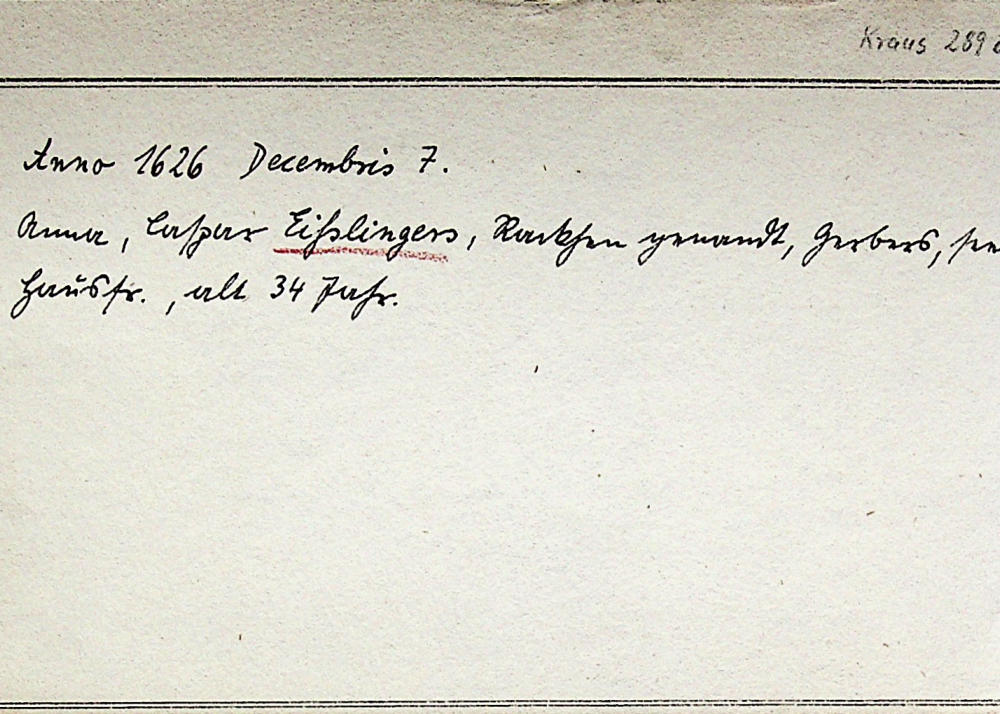 Kraus 289
Anno 1626 Decembris 7.
Anna, Caspar Eißlingers, genandt, Gerbers,
Hausfr., alt 34 Jahr.